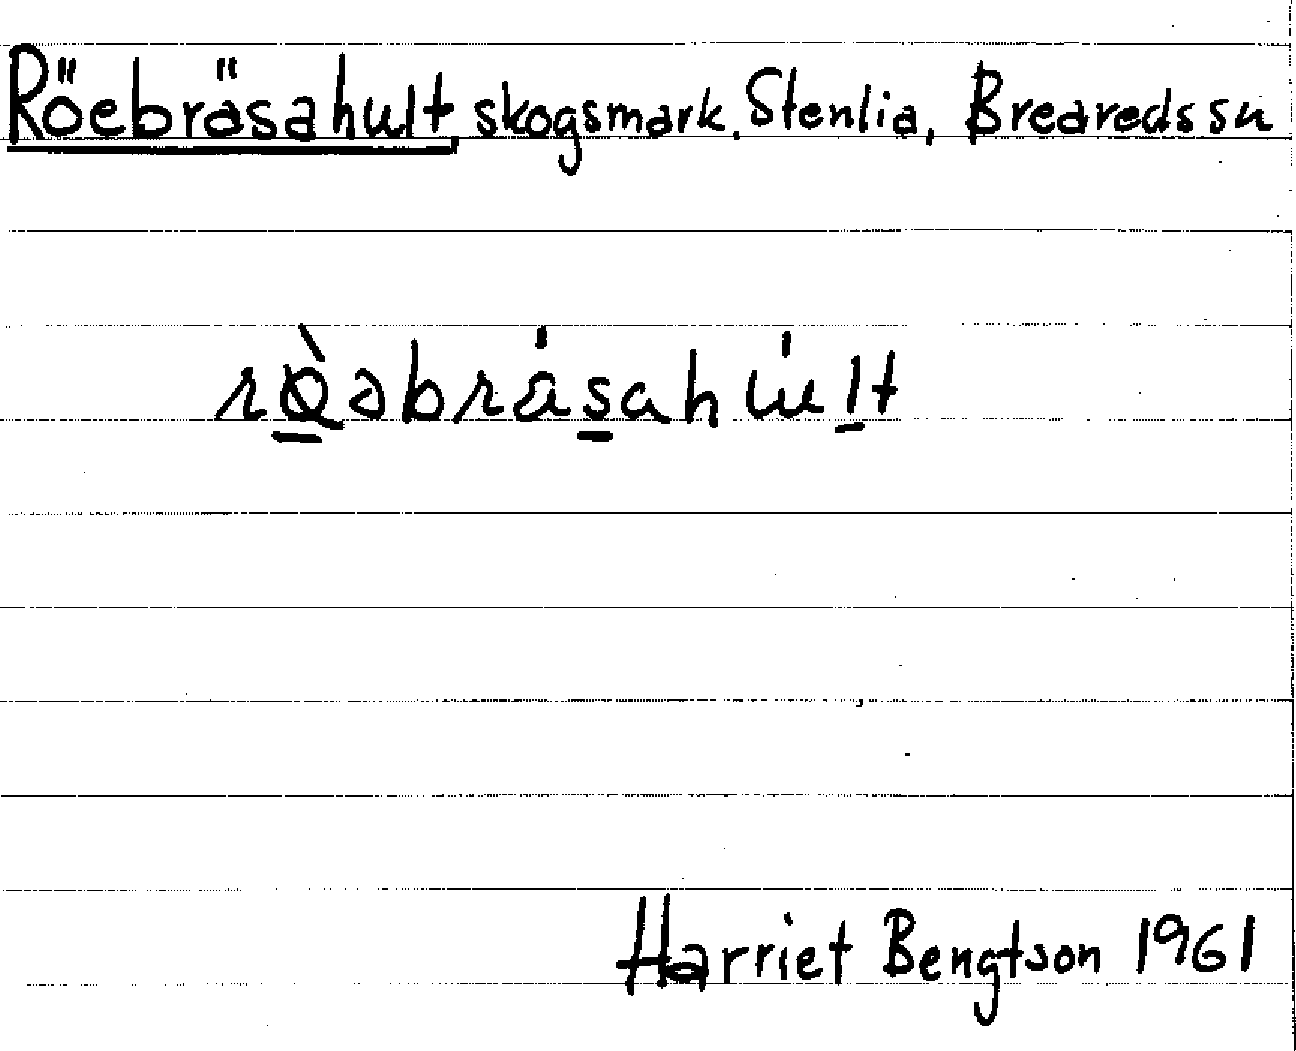 Röebräsahult, skogsmark. Stenlia, Breareds sn
Harriet Bengtson 1961